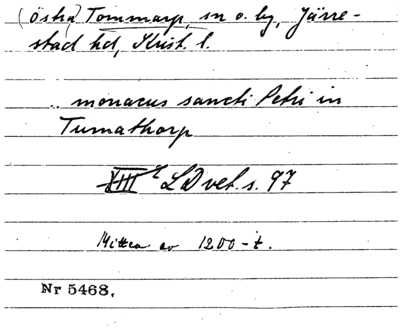 (Östra) Tommarp, sn o. by, Järre-
stad hd, Krist. l.
.. monacus sancti Petri in
Tumathorp
XIII 2 LD vet. s. 97
Mitten av 1200-t.
Nr 5468.